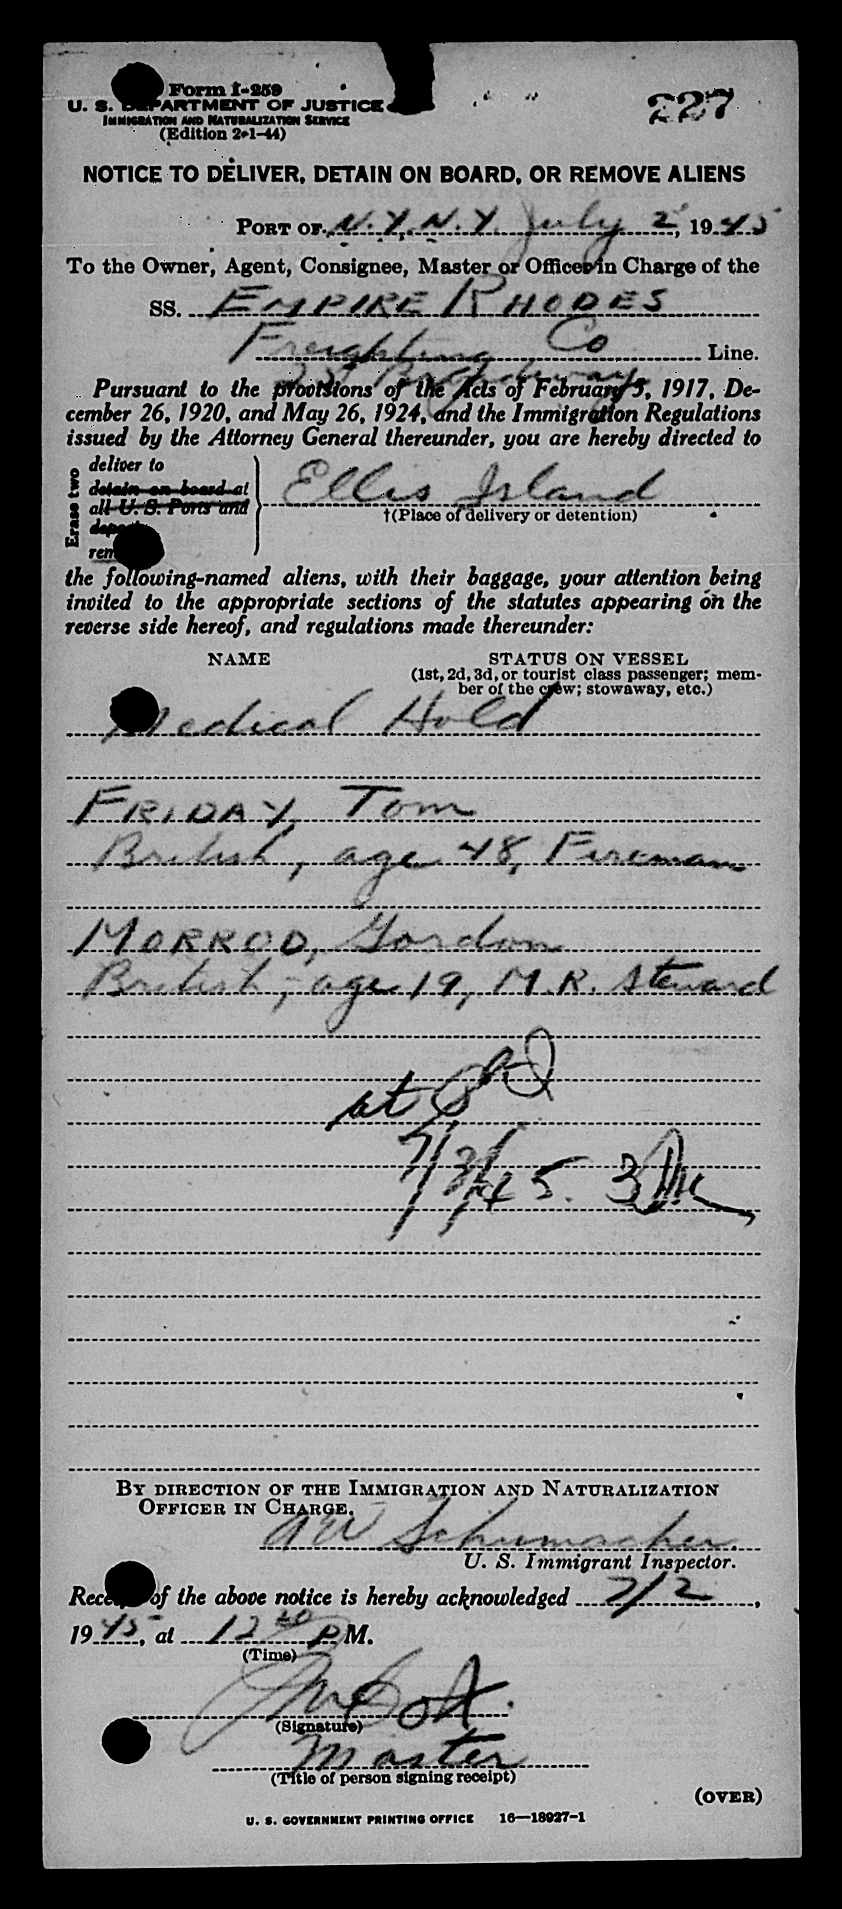 Form I-259
U. S. DEPARTMENT OF JUSTICE
IMMIGRATION AND NATURALIZATION SERVICE
(Edition 2-1-44)
227
NOTICE TO DELIVER, DETAIN ON BOARD, OR REMOVE ALIENS
PORT OF N.Y., N.Y. July 2, 1945
To the Owner, Agent, Consignee, Master or Officer in Charge of the
SS. EMPIRE RHODES
Freighting Co Line.
25 Broadway
Pursuant to the provisions of the Acts of February 5, 1917, De-
cember 26, 1920, and May 26, 1924, and the Immigration Regulations
issued by the Attorney General thereunder, you are hereby directed to
Erase two
deliver to
detain on board at
all U. S. Ports and
Ellis Island
†(Place of delivery or detention)
the following-named aliens, with their baggage, your attention being
invited to the appropriate sections of the statutes appearing on the
reverse side hereof, and regulations made thereunder:
NAME STATUS ON VESSEL
(1st, 2d, 3d, or tourist class passenger; mem-
ber of the crew; stowaway, etc.)
Medical Hold
FRIDAY, Tom
British, age 48, Fireman
MORROD, Gordon
British, age 19, M.R. Steward
at
7/3/45.
BY DIRECTION OF THE IMMIGRATION AND NATURALIZATION
OFFICER IN CHARGE.
AW Schumacher.
U. S. Immigrant Inspector.
Receipt of the above notice is hereby acknowledged 7/2,
1945, at 12 P M.
(Time)
(Signature)
Master
(Title of person signing receipt)
(OVER)
U. S. GOVERNMENT PRINTING OFFICE 16—18927-1